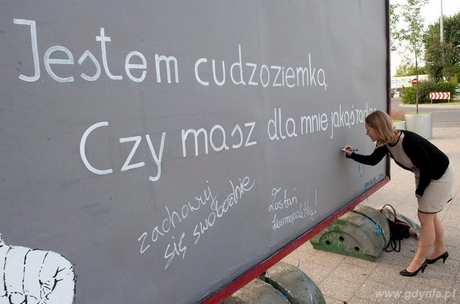 Jestem cudzoziemką,
Czy masz dla mnie jakąś radę
zachowuj
się swobodnie
Zostań
kosmopolitką!
www.gdynia.pl